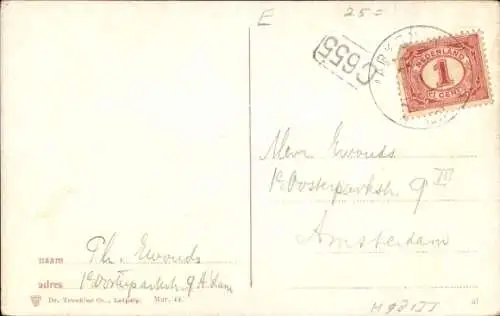 E
25=
C655
NEDERLAND
1
CENT
Mevr Ewouds
1e Oosterparkstr 9 III
Amsterdam
naam Th. Ewouds
adres 1e Oosterparkstr 9 A'dam
Dr. Trenkler Co., Leipzig. Mar. 44.